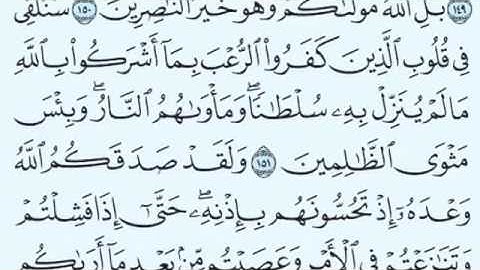 ١٤٩ بَلِ ٱللَّهُ مَوْلَىٰكُمْ وَهُوَ خَيْرُ ٱلنَّٰصِرِينَ ١٥٠ سَنُلْقِى
فِى قُلُوبِ ٱلَّذِينَ كَفَرُوا۟ ٱلرُّعْبَ بِمَآ أَشْرَكُوا۟ بِٱللَّهِ
مَا لَمْ يُنَزِّلْ بِهِۦ سُلْطَٰنًا ۖ وَمَأْوَىٰهُمُ ٱلنَّارُ ۖ وَبِئْسَ
مَثْوَى ٱلظَّٰلِمِينَ ١٥١ وَلَقَدْ صَدَقَكُمُ ٱللَّهُ
وَعْدَهُۥٓ إِذْ تَحُسُّونَهُم بِإِذْنِهِۦ ۖ حَتَّىٰٓ إِذَا فَشِلْتُمْ
وَتَنَٰزَعْتُمْ فِى ٱلْأَمْرِ وَعَصَيْتُم مِّنۢ بَعْدِ مَآ أَرَىٰكُم